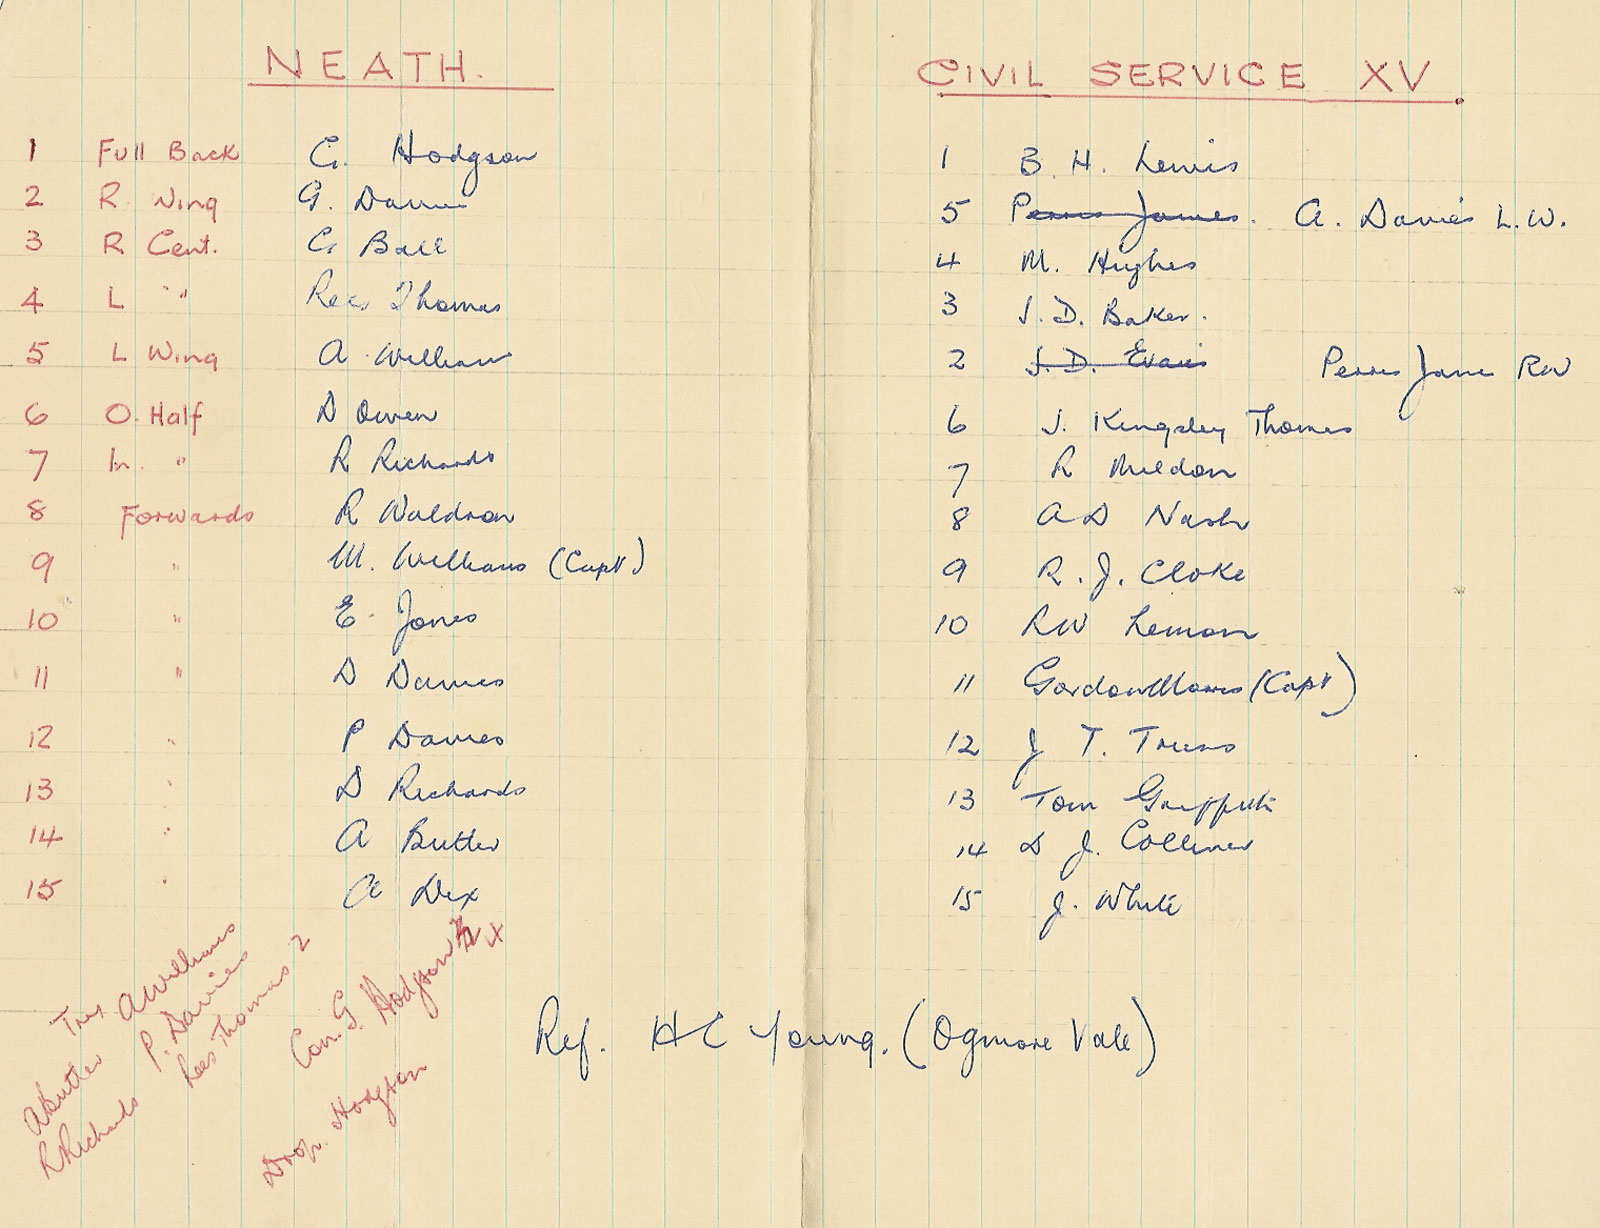 NEATH.
1 Full Back G. Hodgson
2 R. Wing G. Davies
3 R Cent. G Ball
4 L " Rees Thomas
5 L Wing A. Williams
6 O. Half D Owen
7 In. " R Richards
8 Forwards R Waldron
9 " M. Williams (Capt)
10 " E. Jones
11 " D Davies
12 " P Davies
13 " D Richards
14 " A Butler
15 " A Dix
Trys A Williams
P. Davies
Rees Thomas 2
A Butler
R Richards
Con. G. Hodgson 4
Drop. Hodgson
CIVIL SERVICE XV.
1 B. H. Lewis
5 Perris James. A. Davies L.W.
4 M. Hughes
3 J. D. Baker.
2 J. D. Evans Perris James RW
6 J. Kingsley Thomas
7 R Meldon
8 A D Nash
9 R. J. Cloke
10 RW Lemon
11 Gordon Morris (Capt)
12 J T. Truss
13 Tom Griffith
14 D J. Collener
15 J. White
Ref. H C Young. (Ogmore Vale)